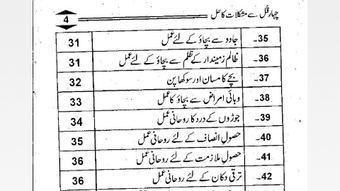 چہار قل سے مشکلات کا حل
4
35- جادو سے بچاؤ کے لئے عمل 31
36- ظالم زمیندار کے ظلم سے بچاؤ کے لئے عمل 31
37- بچے کا مسان اور سوکھا پن 32
38- وبائی امراض سے بچاؤ کا عمل 33
39- جوڑوں کے درد کا روحانی عمل 34
40- حصول انصاف کے لئے روحانی عمل 35
41- حصول ملازمت کے لئے روحانی عمل 36
42- ترقی دکان کے لئے روحانی عمل 36